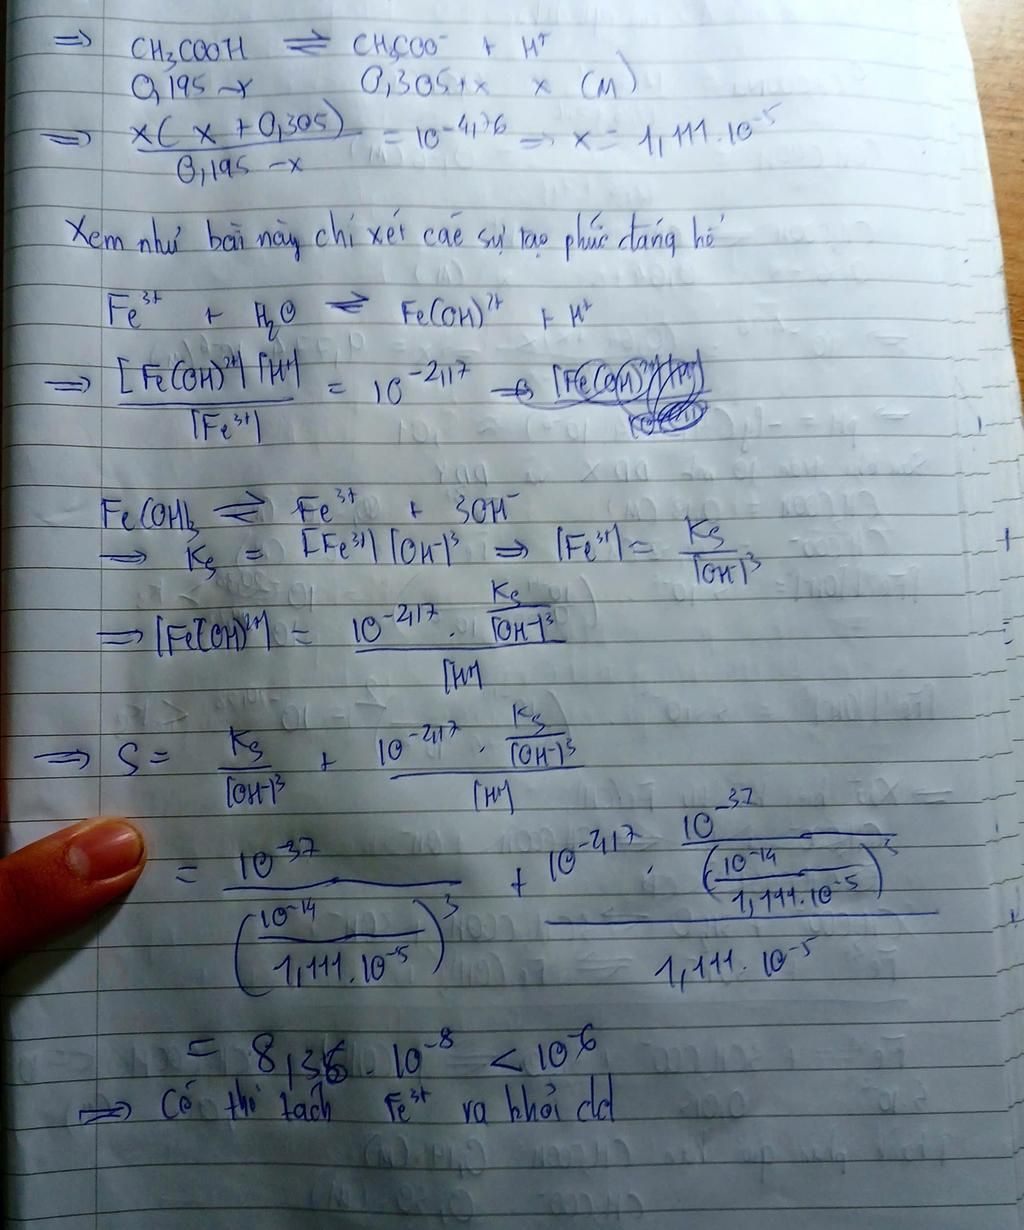 ⇒ CH₃COOH ⇌ CH₃COO⁻ + H⁺
0,195-x 0,305+x x (M)
⇒ x(x + 0,305) / (0,195 - x) = 10^-4,76 ⇒ x = 1,111.10^-5
Xem như bài này chỉ xét các sự tạo phức đáng hể
Fe³⁺ + H₂O ⇌ Fe(OH)²⁺ + H⁺
⇒ [Fe(OH)²⁺][H⁺] / [Fe³⁺] = 10^-2,17
Fe(OH)₃ ⇌ Fe³⁺ + 3OH⁻
⇒ Ks = [Fe³⁺][OH⁻]³ ⇒ [Fe³⁺] = Ks / [OH⁻]³
⇒ [Fe(OH)²⁺] = (10^-2,17 . Ks / [OH⁻]³) / [H⁺]
⇒ S = Ks / [OH⁻]³ + (10^-2,17 . Ks / [OH⁻]³) / [H⁺]
= 10^-37 / (10^-14 / 1,111.10^-5)³ + (10^-2,17 . 10^-37 / (10^-14 / 1,111.10^-5)³) / 1,111.10^-5
= 8,36.10^-8 < 10^-6
⇒ Có thể tách Fe³⁺ ra khỏi dd